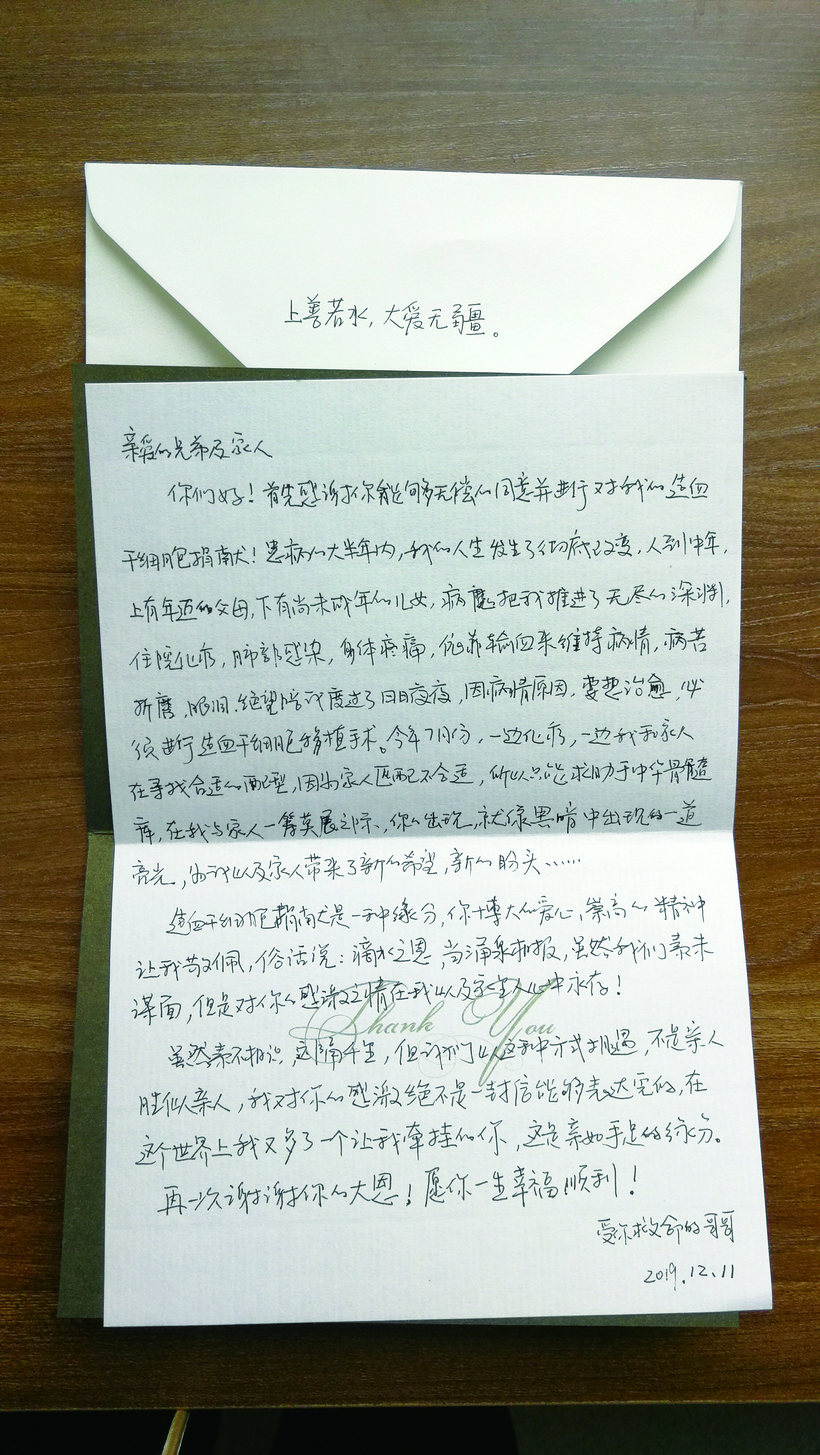 上善若水，大爱无疆。
亲爱的兄弟及家人
你们好！首先感谢你能够无偿的同意并进行对我的造血
干细胞捐献！患病的大半年内，我的人生发生了彻底改变，人到中年，
上有年迈的父母，下有尚未成年的儿女，病魔把我推进了无尽的深渊，
住院化疗，肺部感染，身体疼痛，依靠输血来维持病情，病苦
折磨，眼泪、绝望陪我度过了日日夜夜，因病情原因，要想治愈，必
须进行造血干细胞移植手术。今年7月份，一边化疗，一边我和家人
在寻找合适的配型，因为家人匹配不合适，所以只能求助于中华骨髓
库，在我与家人一筹莫展之际，你的出现，就像黑暗中出现的一道
亮光，为我以及家人带来了新的希望，新的盼头……
造血干细胞捐献是一种缘分，你博大的爱心，崇高的精神
让我敬佩，俗话说：滴水之恩，当涌泉相报，虽然我们素未
谋面，但是对你的感激之情在我以及家人心中永存！
Thank You
虽然素不相识，远隔千里，但我们以这种方式相遇，不是亲人
胜似亲人，我对你的感激绝不是一封信能够表达完的，在
这个世界上我又多了一个让我牵挂的你，这是亲如手足的缘分。
再一次谢谢你的大恩！愿你一生幸福顺利！
受你救命的哥哥
2019.12.11